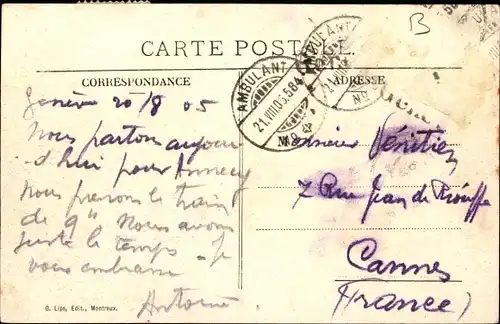 B
CARTE POSTALE.
CORRESPONDANCE
ADRESSE
AMBULANT
21.VIII.05.584
No 9
AMBULANT
No
Genève 20/8 05
Nous partons aujour
d'hui pour Annecy
Nous prenons le train
de 9h Nous avons
juste le temps Je
vous embrasse
Antoine
Monsieur Vénitien
7 Rue Jean de Riouffe
Cannes
(France)
G. Lips, Edit., Montreux.